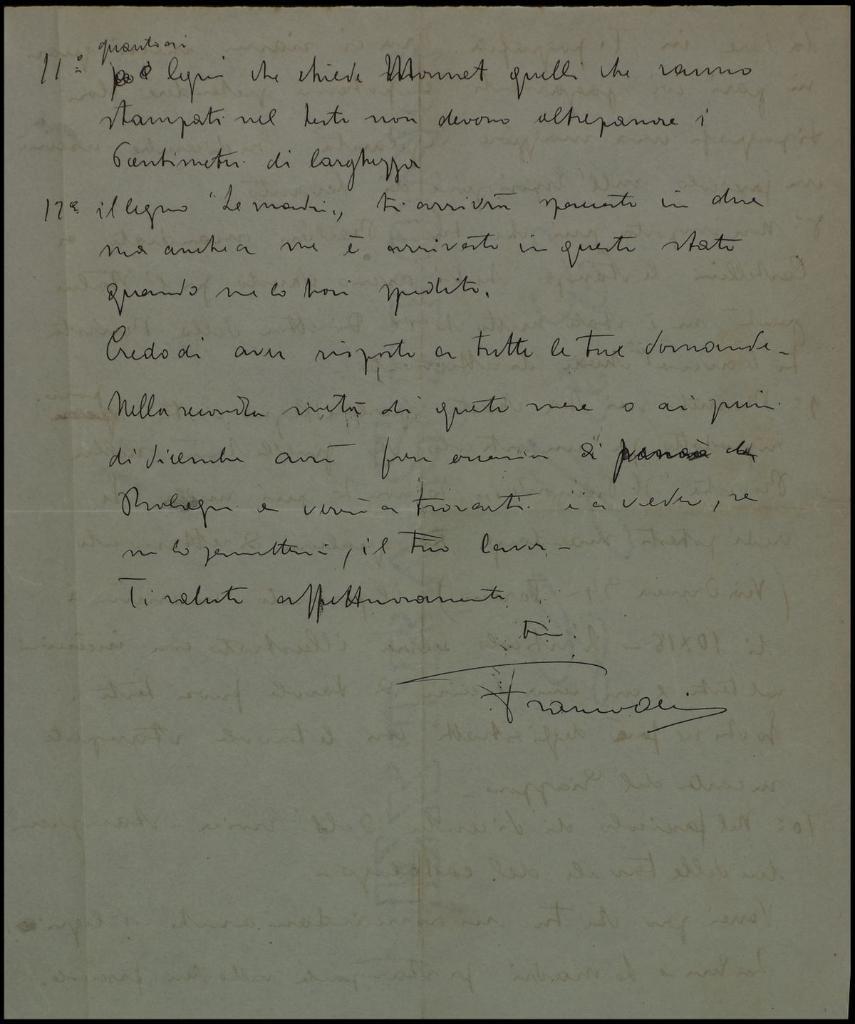 11° quanto ai
legni che chiede Monnet quelli che vanno
stampati nel testo non devono oltrepassare i
6 centimetri di larghezza
12° il legno "Le madri" ti arriverà spaccato in due
ma anche a me è arrivato in questo stato
quando me lo hai spedito.
Credo di aver risposto a tutte le tue domande -
Nella seconda metà di questo mese o ai primi
di dicembre avrò forse occasione di
Bologna e verrò a trovarti e a veder, se
me lo permetterai, il tuo lavoro -
Ti saluto affettuosamente
tuo